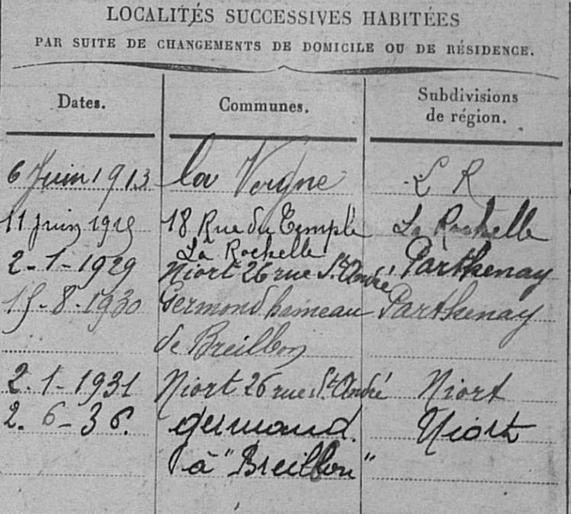 LOCALITÉS SUCCESSIVES HABITÉES
PAR SUITE DE CHANGEMENTS DE DOMICILE OU DE RÉSIDENCE.
Dates. Communes. Subdivisions de région.
6 Juin 1913 la Vergne L R
11 juin 1919 18 Rue du Temple La Rochelle
La Rochelle
2-1-1929 Niort 26 rue St André Parthenay
15-8-1930 Germond hameau Parthenay
de Breilbon
2.1-1931 Niort 26 rue St André Niort
2.6-36. germond. Niort
à "Breilbon"